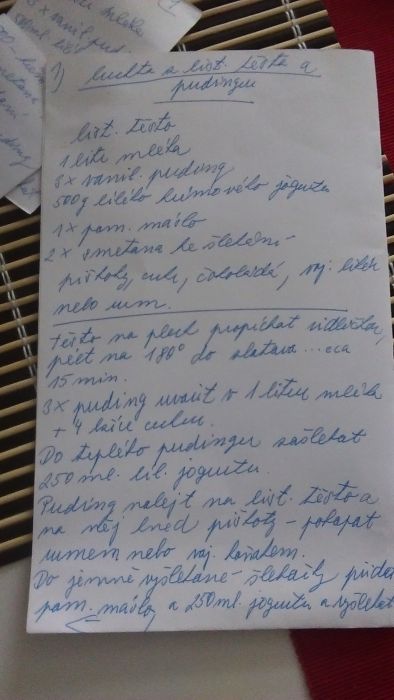 1) buchta z list. těsta a
pudingu
list. těsto
1 litr mléka
3x vanil. puding
500g bílého krémového jogurtu
1x pom. máslo
2x smetana ke šlehání
piškoty, cukr, čokoláda, vaj. likér
nebo rum.
těsto na plech propíchat vidličkou,
péct na 180° do zlatava...cca
15 min.
3x puding uvařit v 1 litru mléka
+ 4 lžíce cukru.
Do teplého pudingu zašlehat
250 ml. bíl. jogurtu.
Puding nalejt na list. těsto a
na něj hned piškoty - pokapat
rumem nebo vaj. koňakem.
Do jemně vyšlehané šlehačky přidat
pom. máslo, a 250 ml. jogurtu a vyšlehat